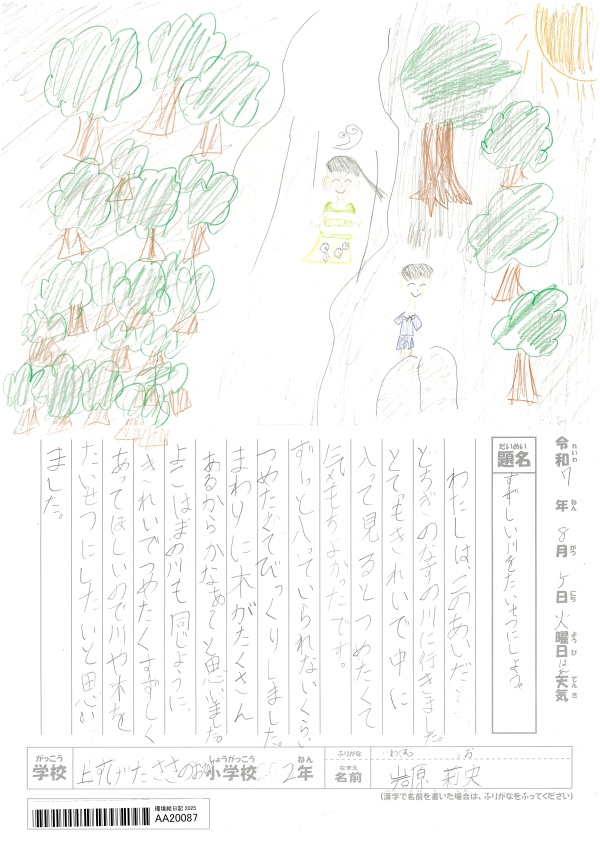 令和7年8月5日火曜日 天気
題名 すずしい川をたいせつにしよう
わたしは、このあいだ、
とちぎのなすの川に行きました。
とてもきれいで中に
入って見るとつめたくて
気もちよかったです。
ずーっと入っていられないくらい
つめたくてびっくりしました。
まわりに木がたくさん
あるからかなぁ〜と思いました。
よこはまの川も同じように、
きれいでつめたくすずしく
あってほしいので川や木を
たいせつにしたいと思い
ました。
学校 小学校 2年
ふりがな
名前 岩原
(漢字で名前を書いた場合は、ふりがなをふってください)
環境絵日記 2025
AA20087